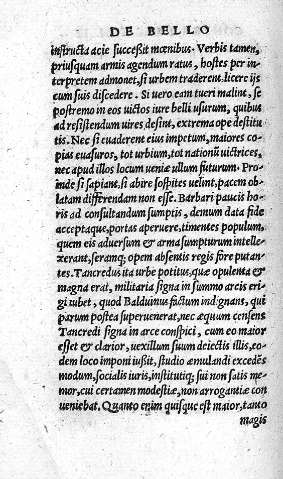 DE BELLO
instructa acie succeſsit mœnibus. Verbis tamen,
priusquam armis agendum ratus, hostes per in-
terpretem admonet, si urbem traderent, licere ijs
cum suis discedere. Si uero eam tueri malint, se
postremo in eos uictos iure belli usurum, quibus
ad resistendum uires desint, extrema ope destitu
tis. Nec si euaderent eius impetum, maiores co-
pias euasuros, tot urbium, tot nationũ uictrices,
nec apud illos locum ueniæ ullum futurum. Pro-
inde si sapiant, si abire soſpites uelint, pacem ob-
latam differendam non esse. Barbari paucis ho-
ris ad consultandum sumptis, demum data fide
acceptaque, portas aperuere, timentes populum,
quem eis aduersum & arma sumpturum intelle-
xerant, seramq; opem absentis regis fore putan-
tes. Tancredus ita urbe potitus, quæ opulenta &
magna erat, militaria signa in summo arcis eri-
gi iubet, quod Balduinus factum indignans, qui
parum postea superuenerat, nec æquum censens
Tancredi signa in arce conſpici, cum eo maior
esset & clarior, uexillum suum deiectis illis, eo-
dem loco imponi iuſsit, studio æmulandi excedẽs
modum, socialis iuris, institutiq; sui non satis me-
mor, cui certamen modestiæ, non arrogantiæ con
ueniebat. Quanto enim quisque est maior, tanto
magis